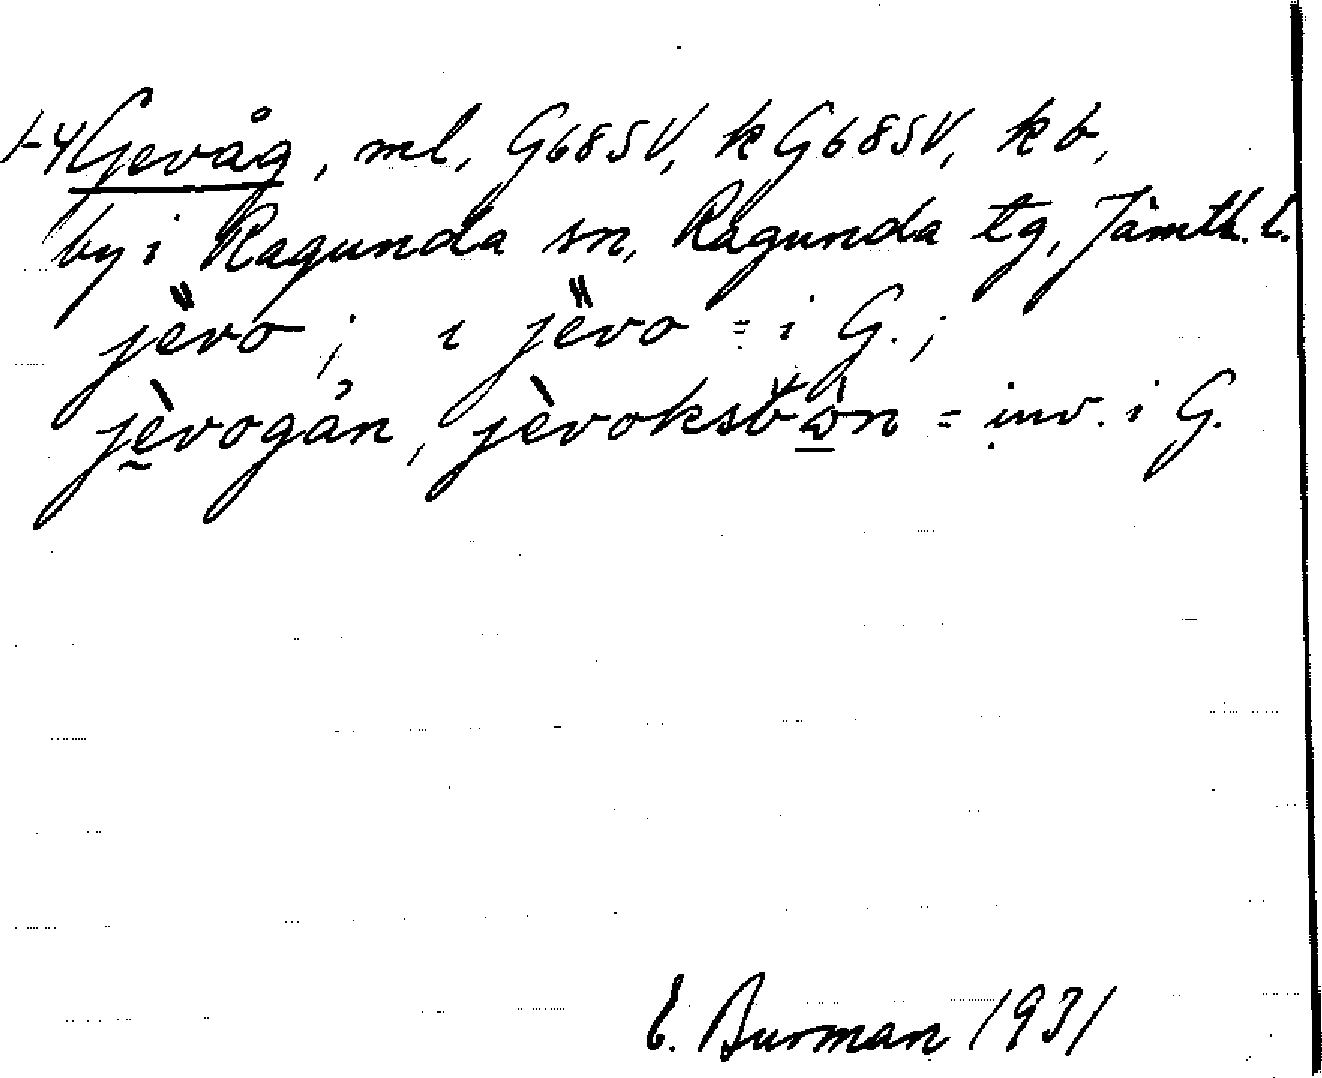 1-4 Gevåg, ml, G68SV, kG68SV, kb,
by i Ragunda sn, Ragunda tg, Jämtl. l.
jèvo; ı jèvo = i G.;
jèvogån, = inv. i G.
E. Burman 1931